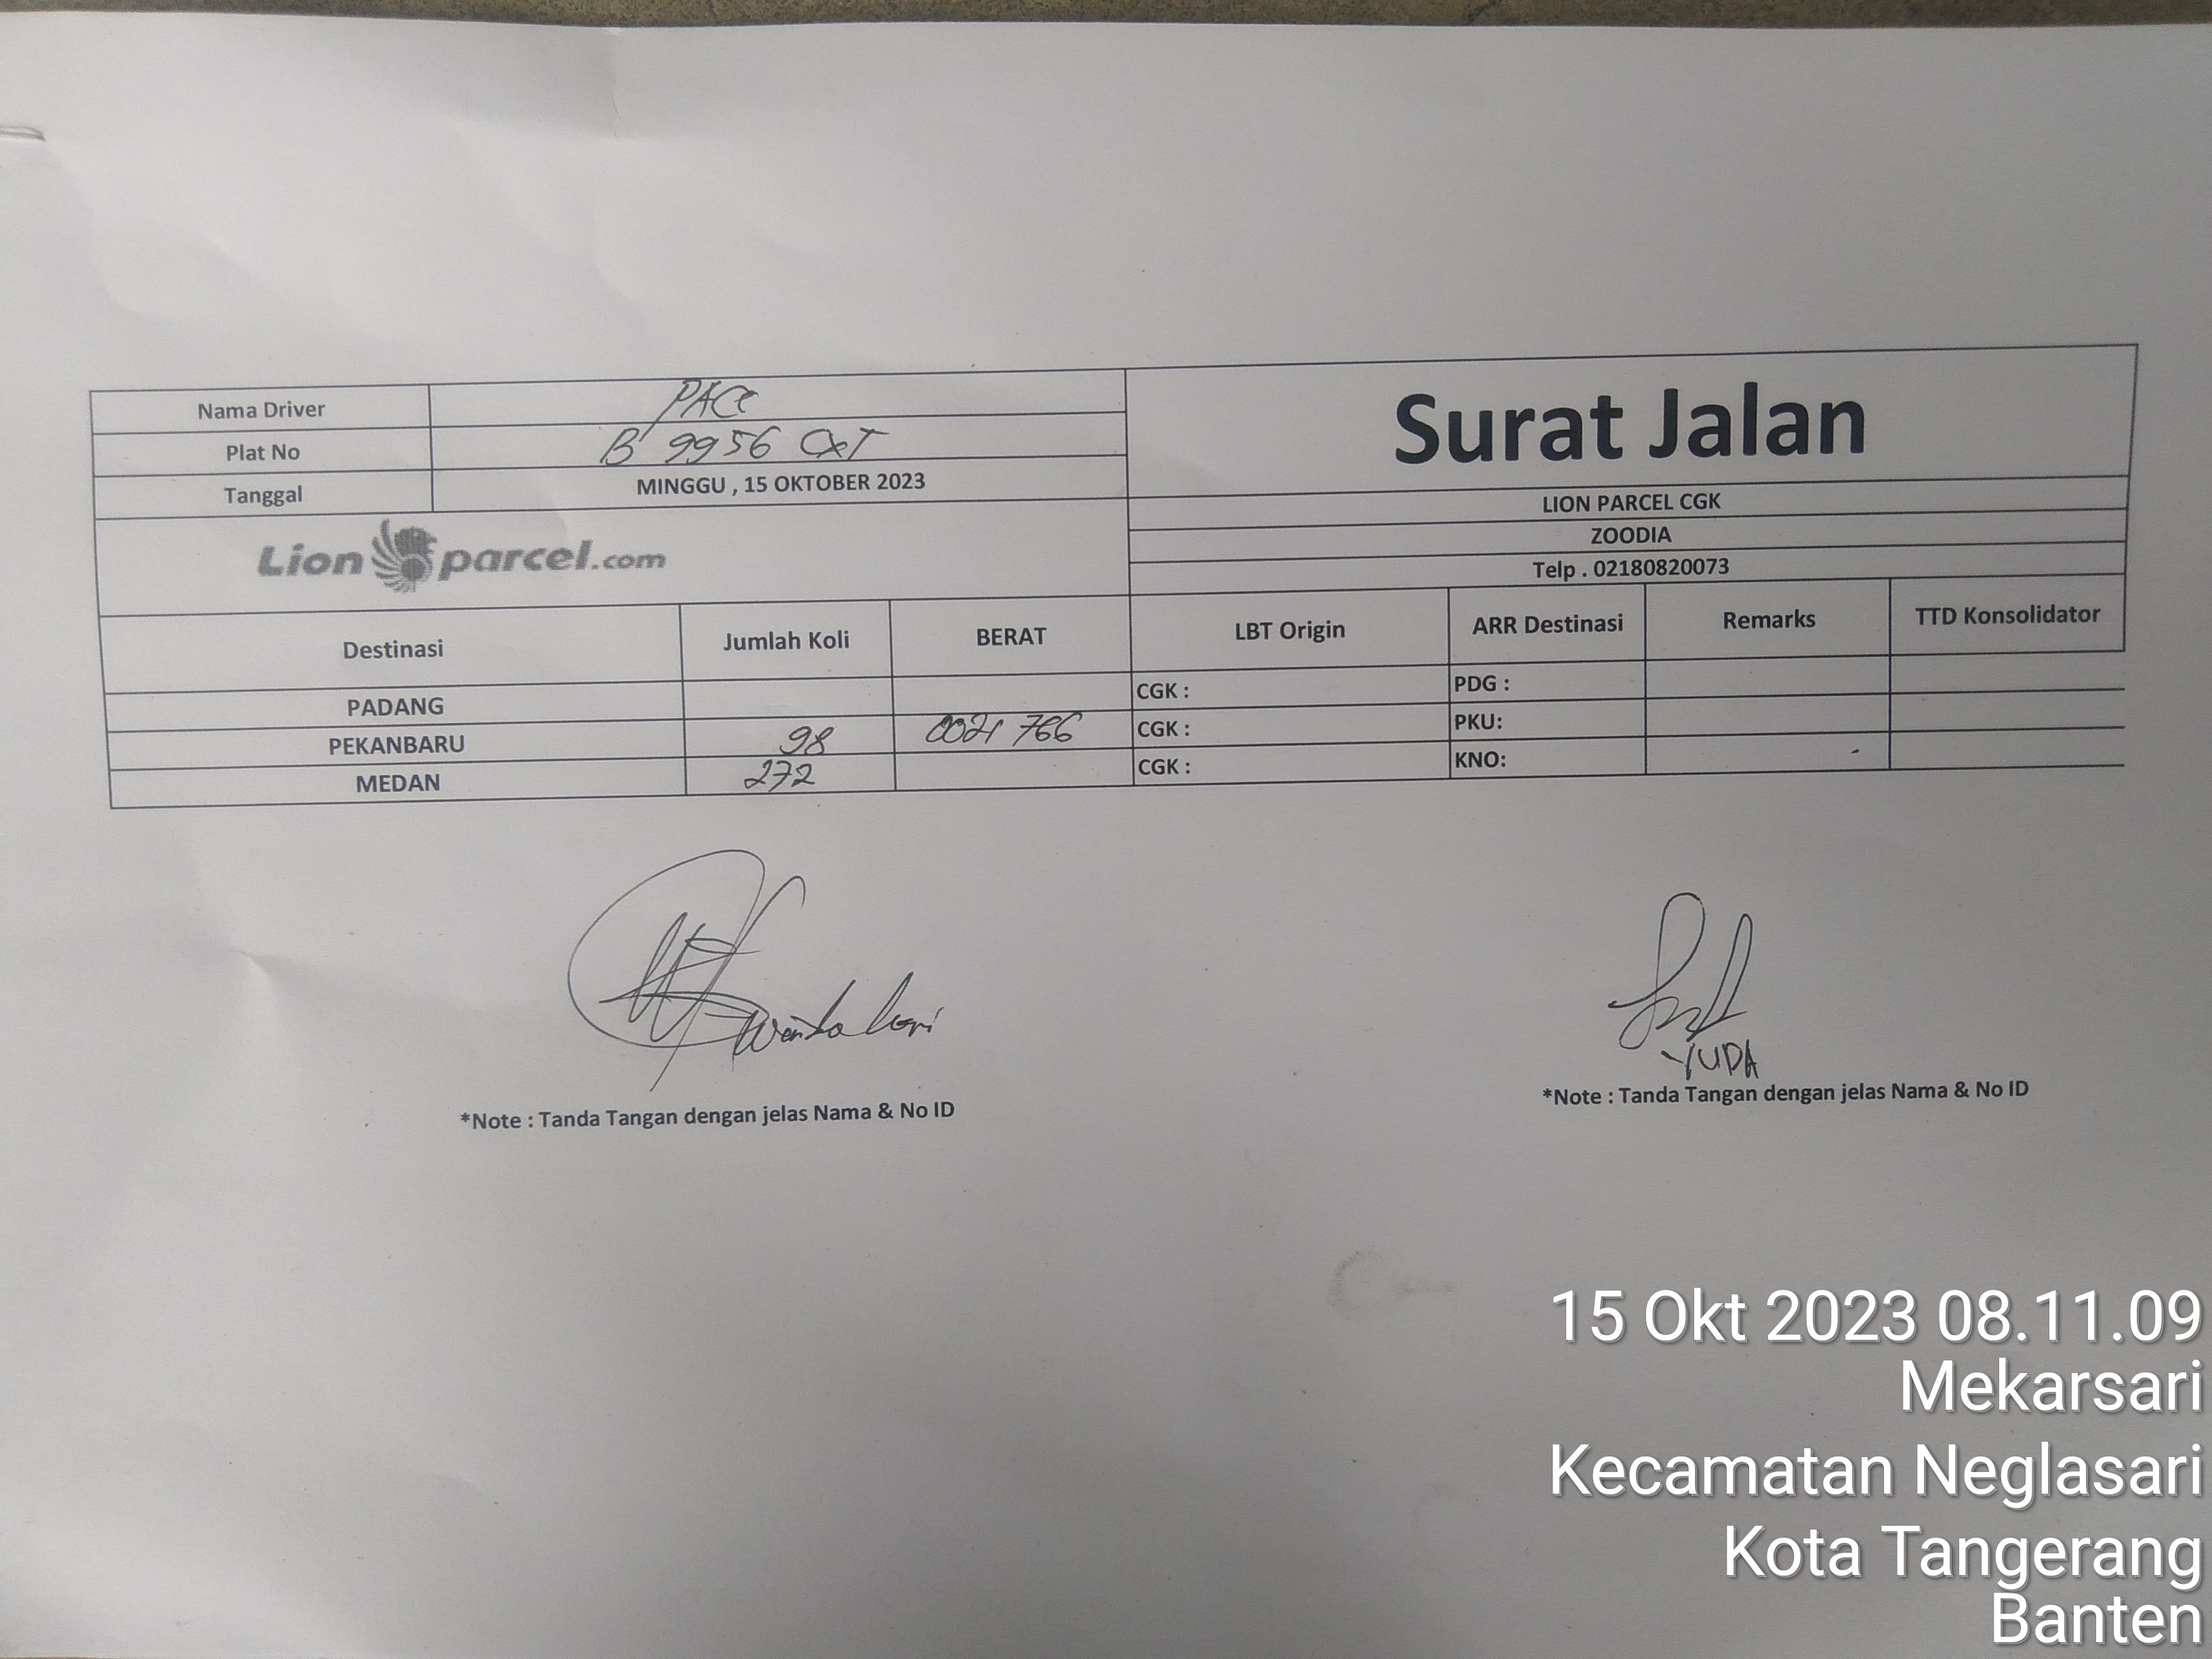 Nama Driver PACE
Plat No B 9956 CXT
Tanggal MINGGU , 15 OKTOBER 2023
Surat Jalan
LION PARCEL CGK
ZOODIA
Telp . 02180820073
Lion parcel.com
Destinasi Jumlah Koli BERAT LBT Origin ARR Destinasi Remarks TTD Konsolidator
PADANG CGK : PDG :
PEKANBARU 98 0021 766 CGK : PKU:
MEDAN 272 CGK : KNO:
YUDA
*Note : Tanda Tangan dengan jelas Nama & No ID
*Note : Tanda Tangan dengan jelas Nama & No ID
15 Okt 2023 08.11.09
Mekarsari
Kecamatan Neglasari
Kota Tangerang
Banten